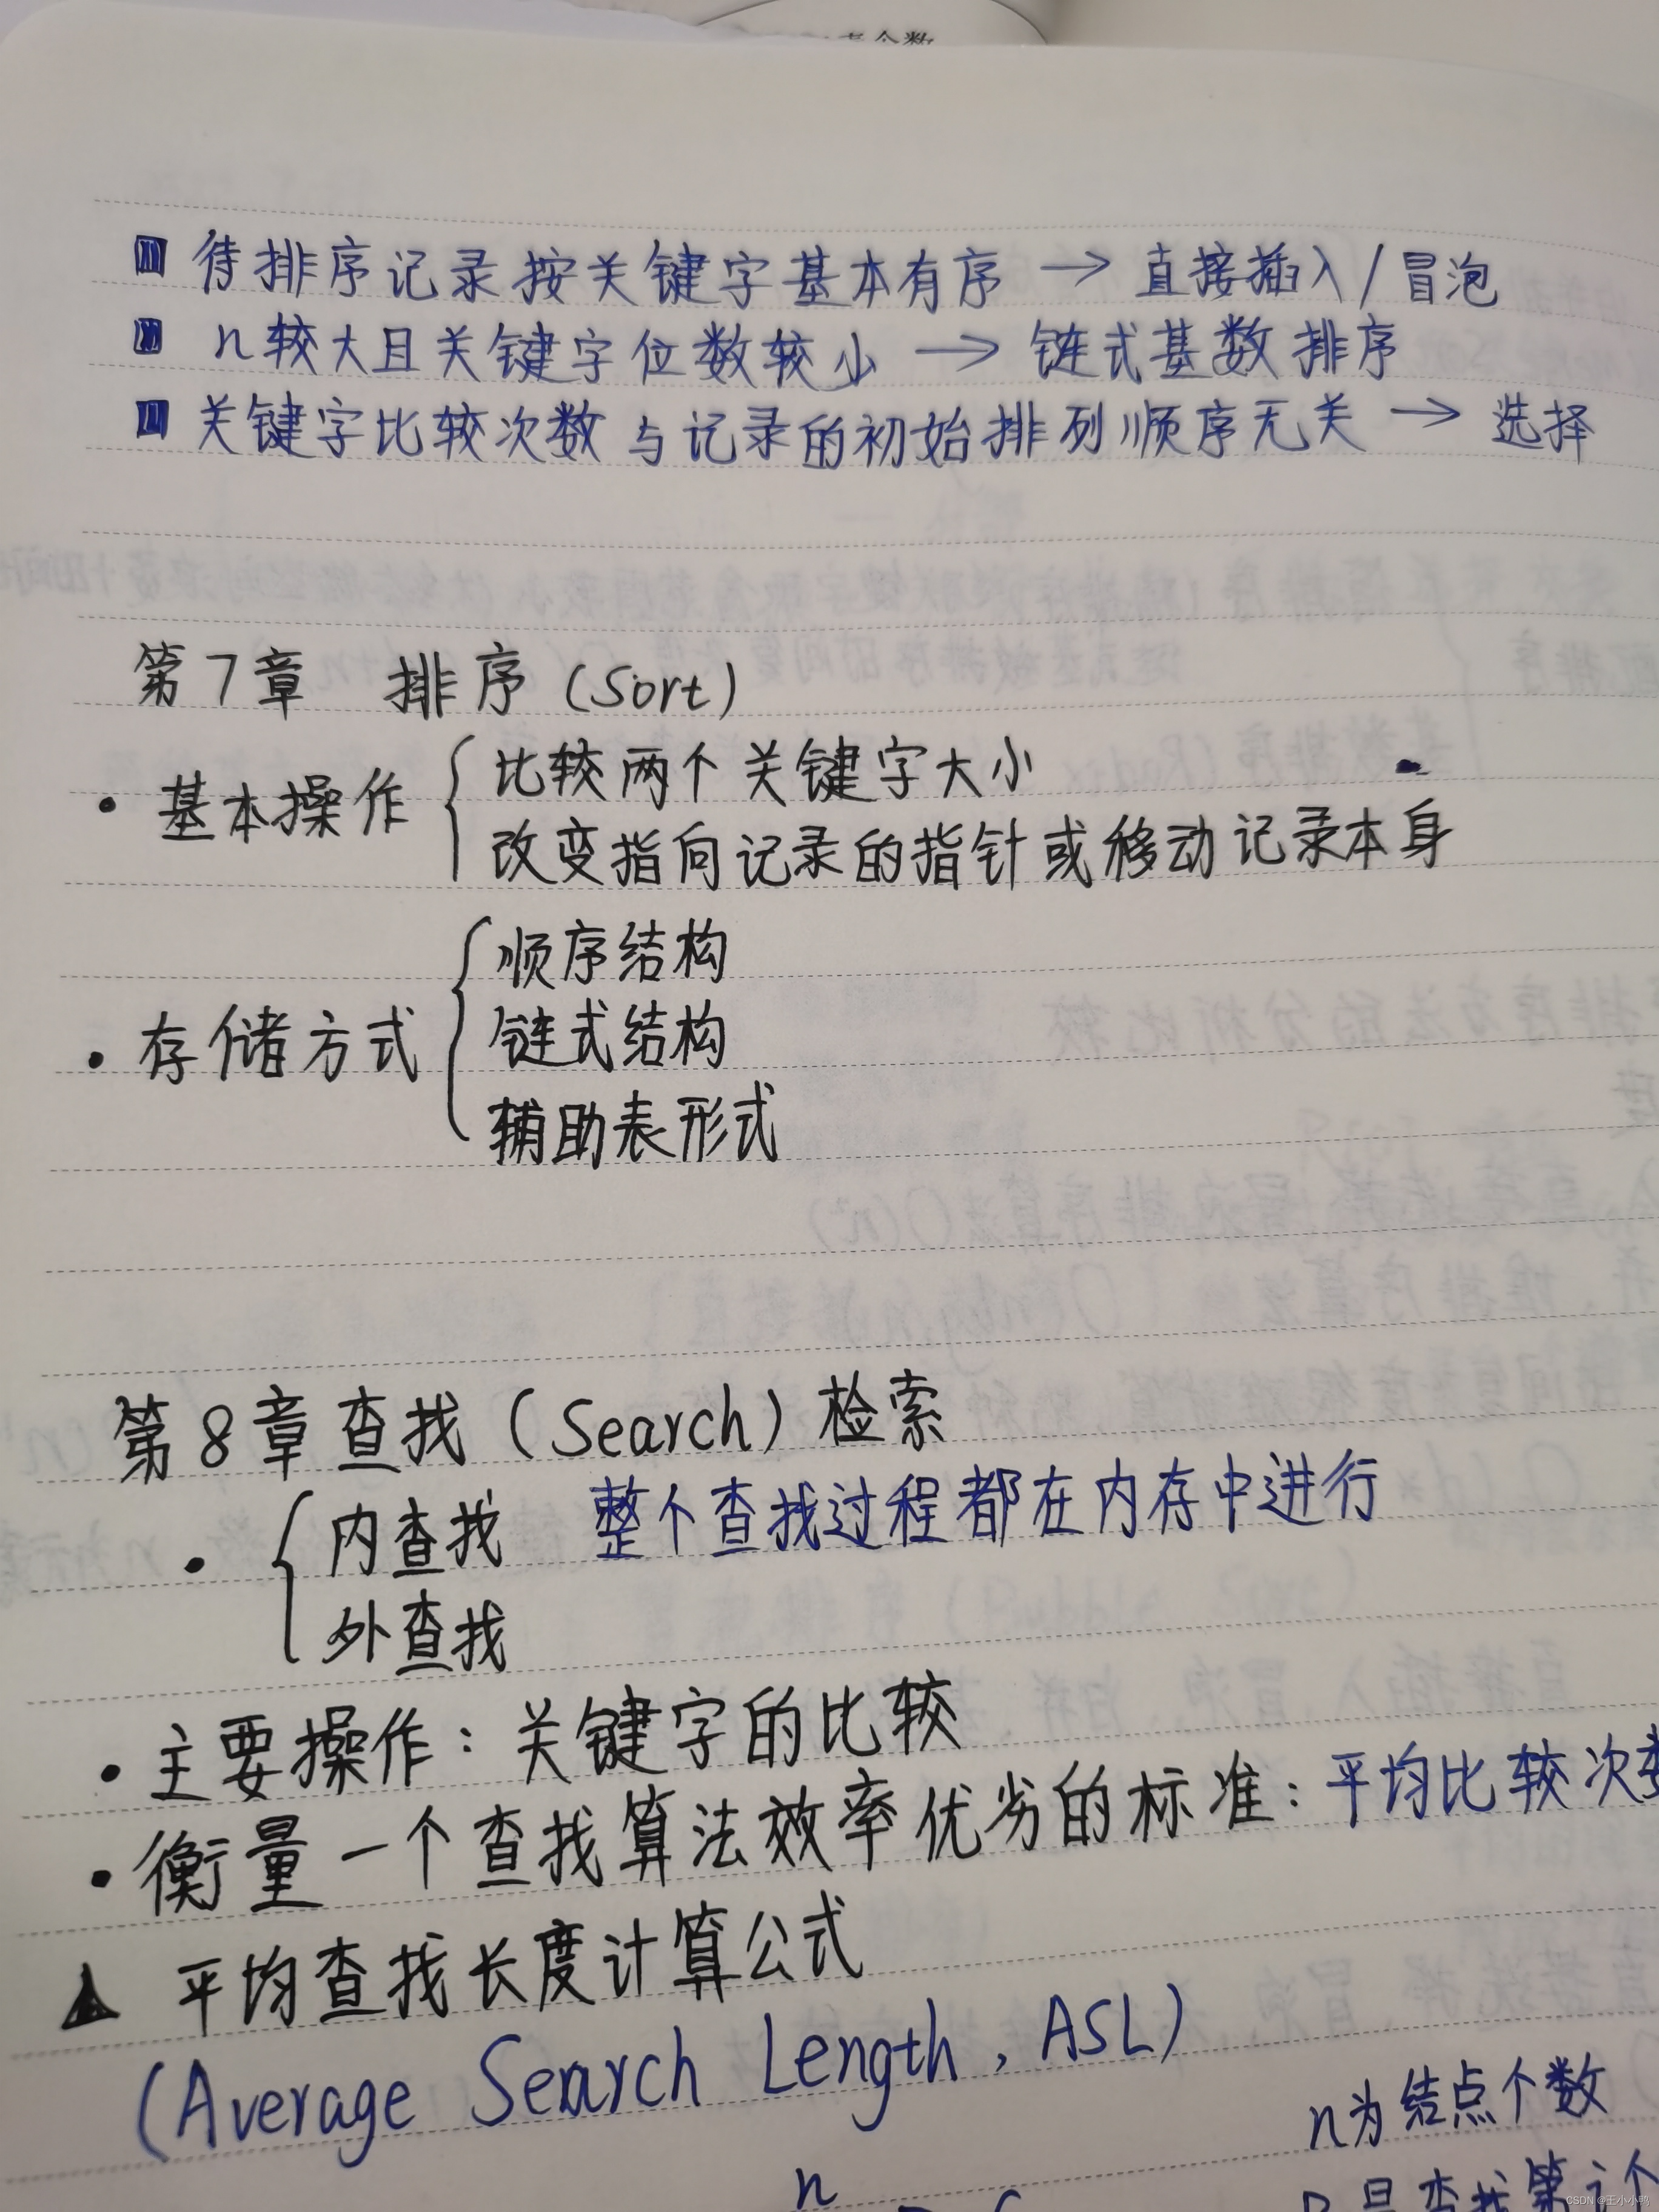 待排序记录按关键字基本有序 → 直接插入/冒泡
n较大且关键字位数较小 → 链式基数排序
关键字比较次数与记录的初始排列顺序无关 → 选择
第7章 排序(Sort)
• 基本操作
比较两个关键字大小
改变指向记录的指针或移动记录本身
• 存储方式
顺序结构
链式结构
辅助表形式
第8章查找(Search)检索
• 内查找 整个查找过程都在内存中进行
外查找
• 主要操作:关键字的比较
• 衡量一个查找算法效率优劣的标准:平均比较次数
▲ 平均查找长度计算公式
(Average Search Length, ASL)
n为结点个数
n
是查找第i个
CSDN @王小小鸭